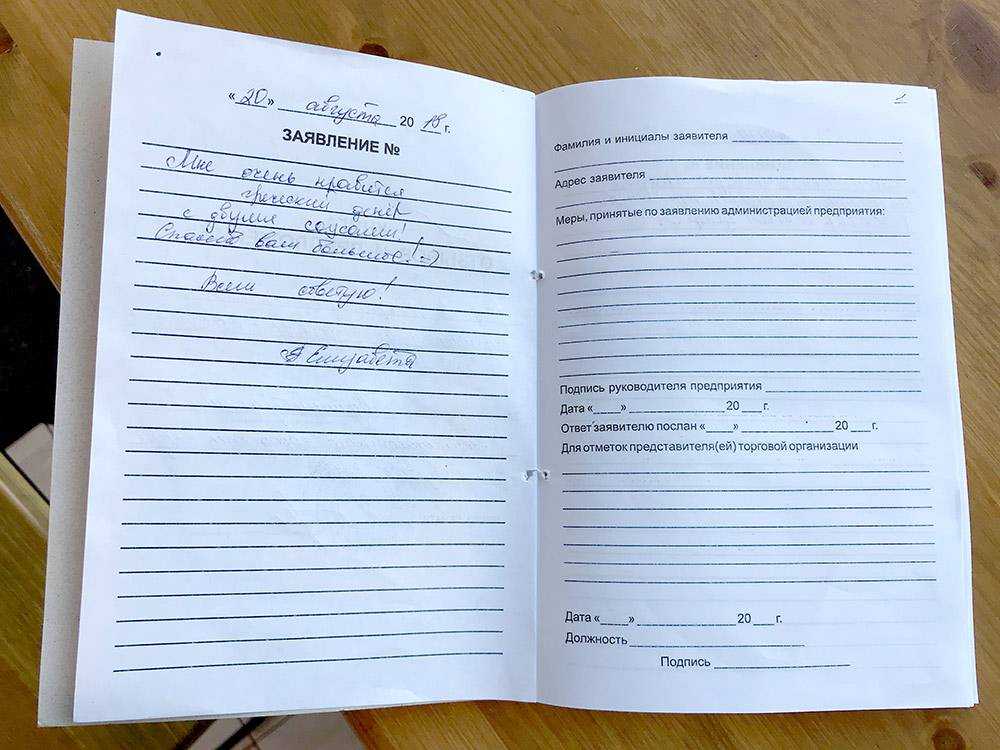 « 20 » августа 20 18 г.
ЗАЯВЛЕНИЕ №
Мне очень нравится
греческий денер
с двумя соусами!
Спасибо вам большое! :-)
Всем советую!
Елизавета
1
Фамилия и инициалы заявителя
Адрес заявителя
Меры, принятые по заявлению администрацией предприятия:
Подпись руководителя предприятия
Дата «____» ____ 20 ___г.
Ответ заявителю послан «____» ____ 20 ___г.
Для отметок представителя(ей) торговой организации
Дата «____» ____ 20 ___г.
Должность
Подпись